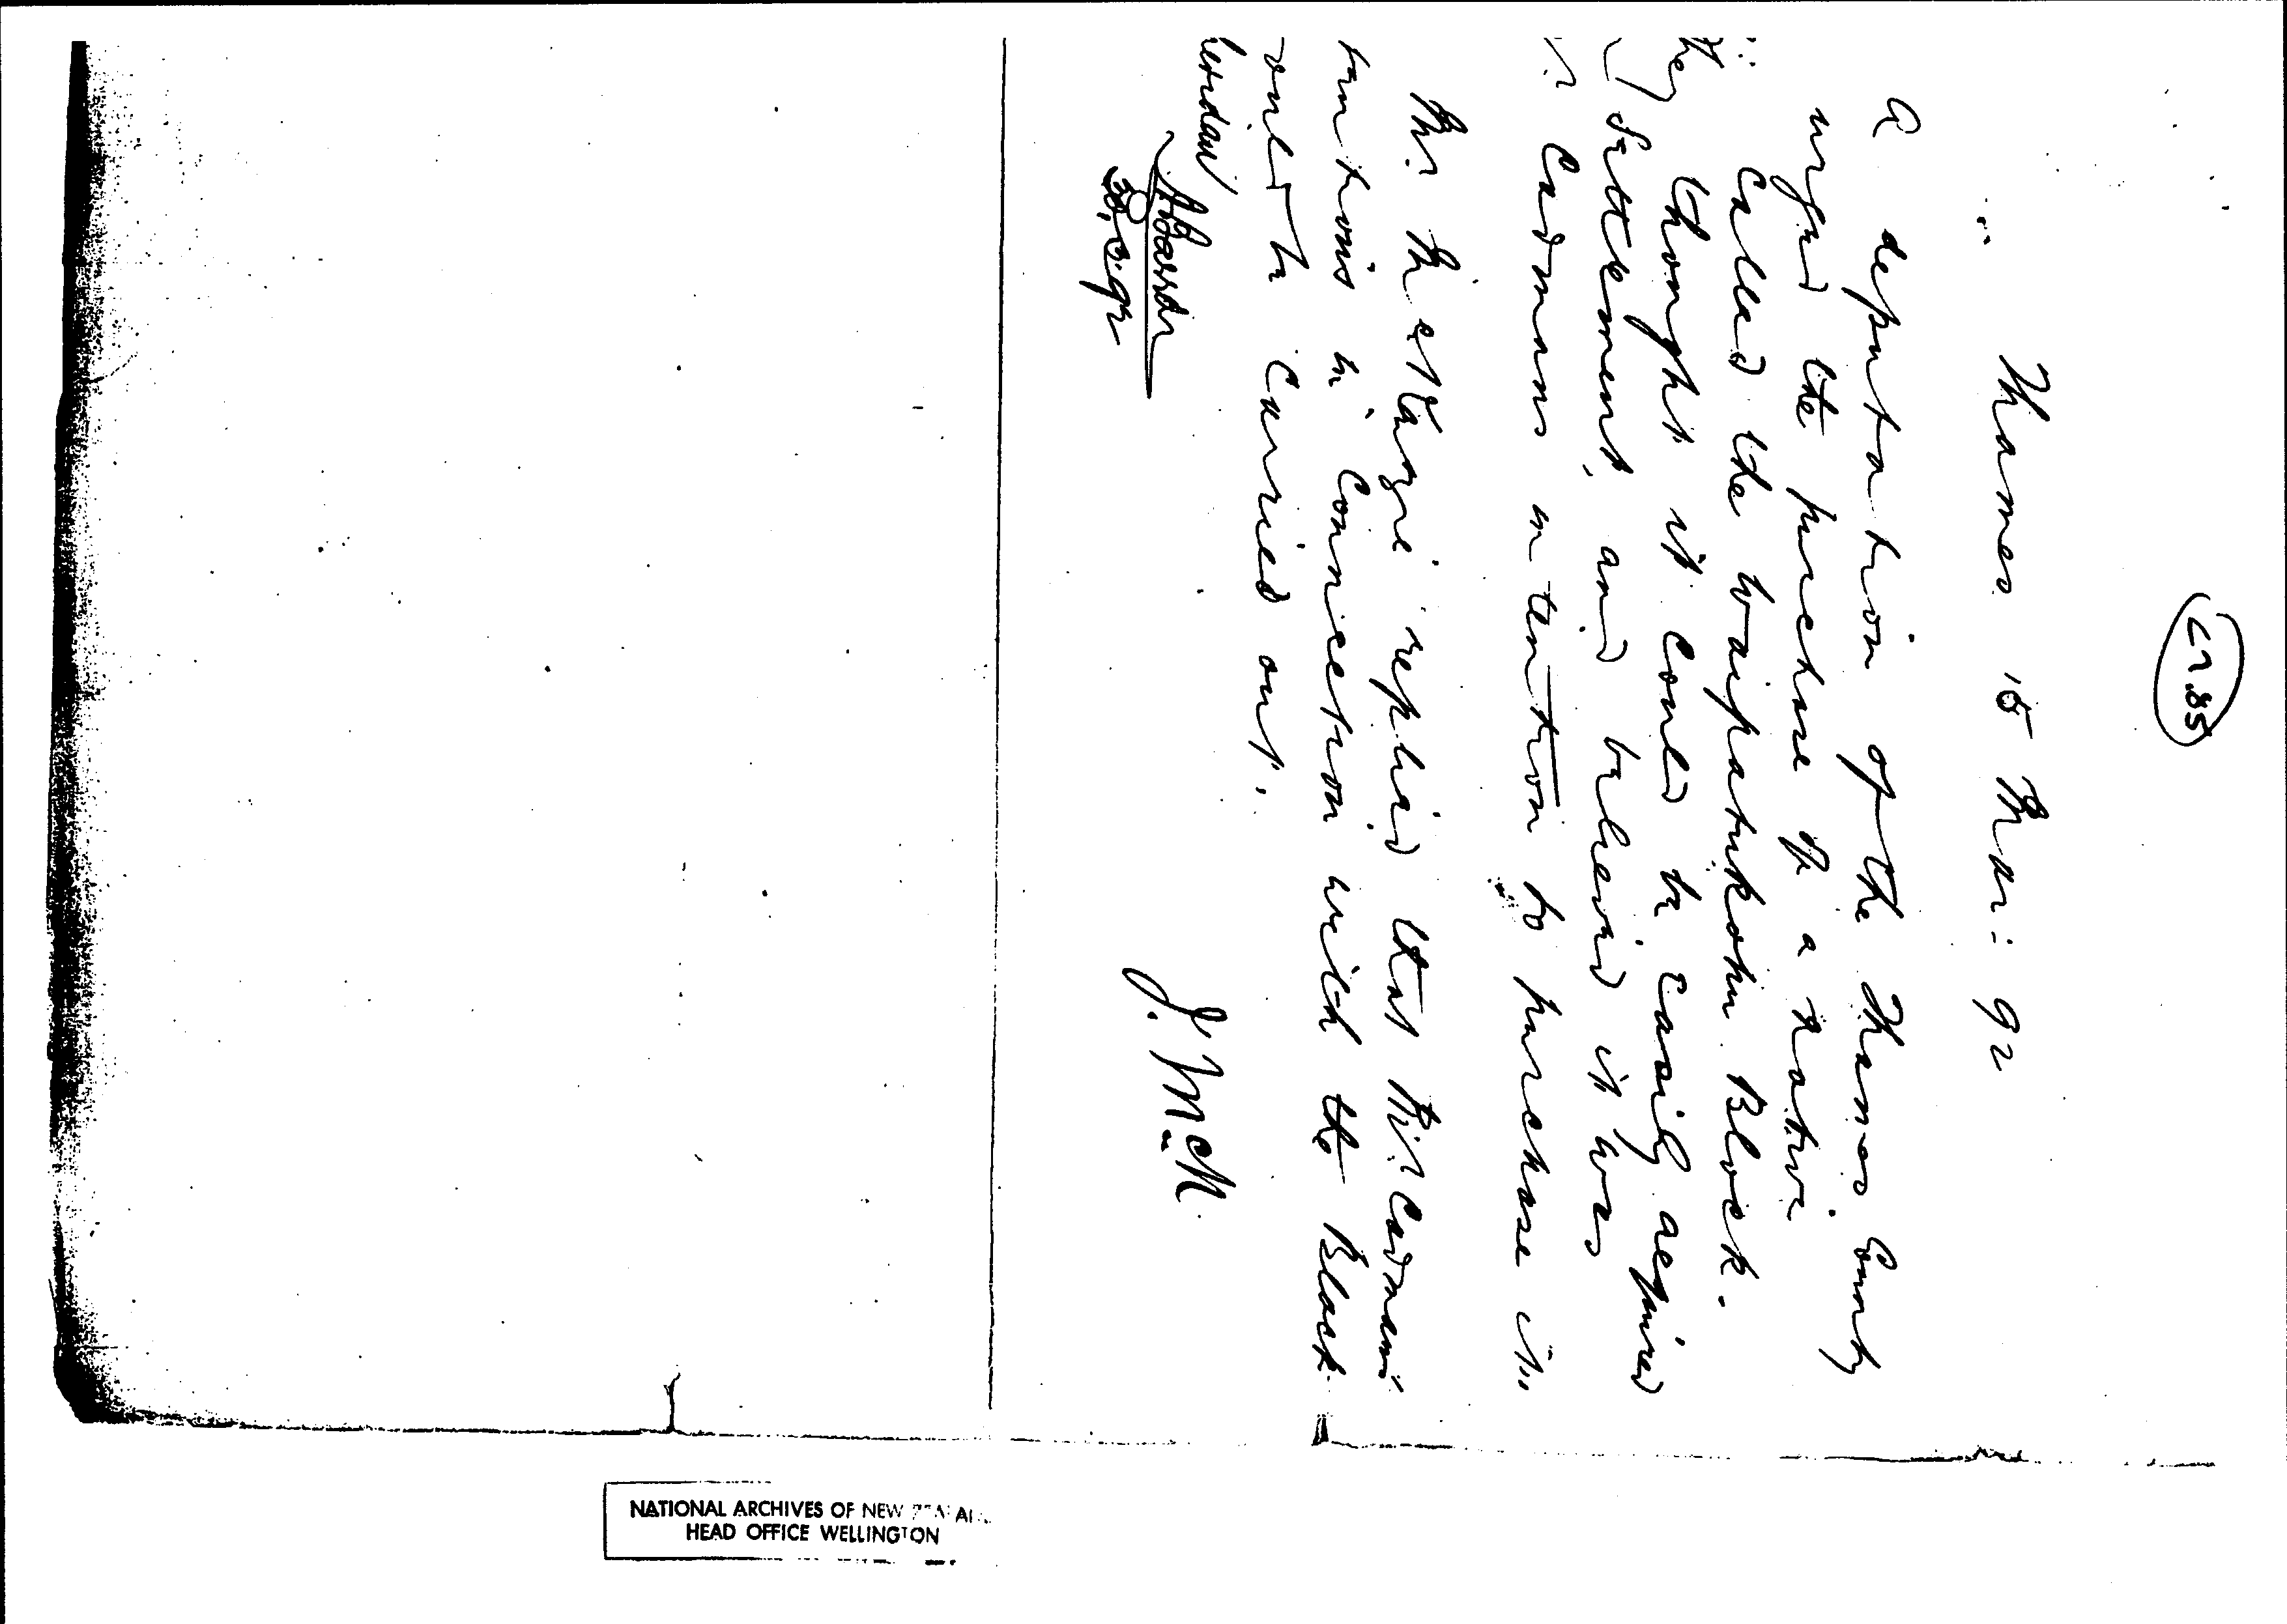 L.n.85
Thames 15 Mar: 92
A deputation of the Thames County
urged the purchase of a native
called the Waipatukahu Block.
they thought it could be easily acquired
Settlement, and believed it was
Cadmans intention to purchase it.
Mr McKenzie replied that Mr Cadmans
tentions in connection with the Block
ould be carried out.
J. McK
heridan
30.3.92
NATIONAL ARCHIVES OF NEW ZEALAN
HEAD OFFICE WELLINGTON